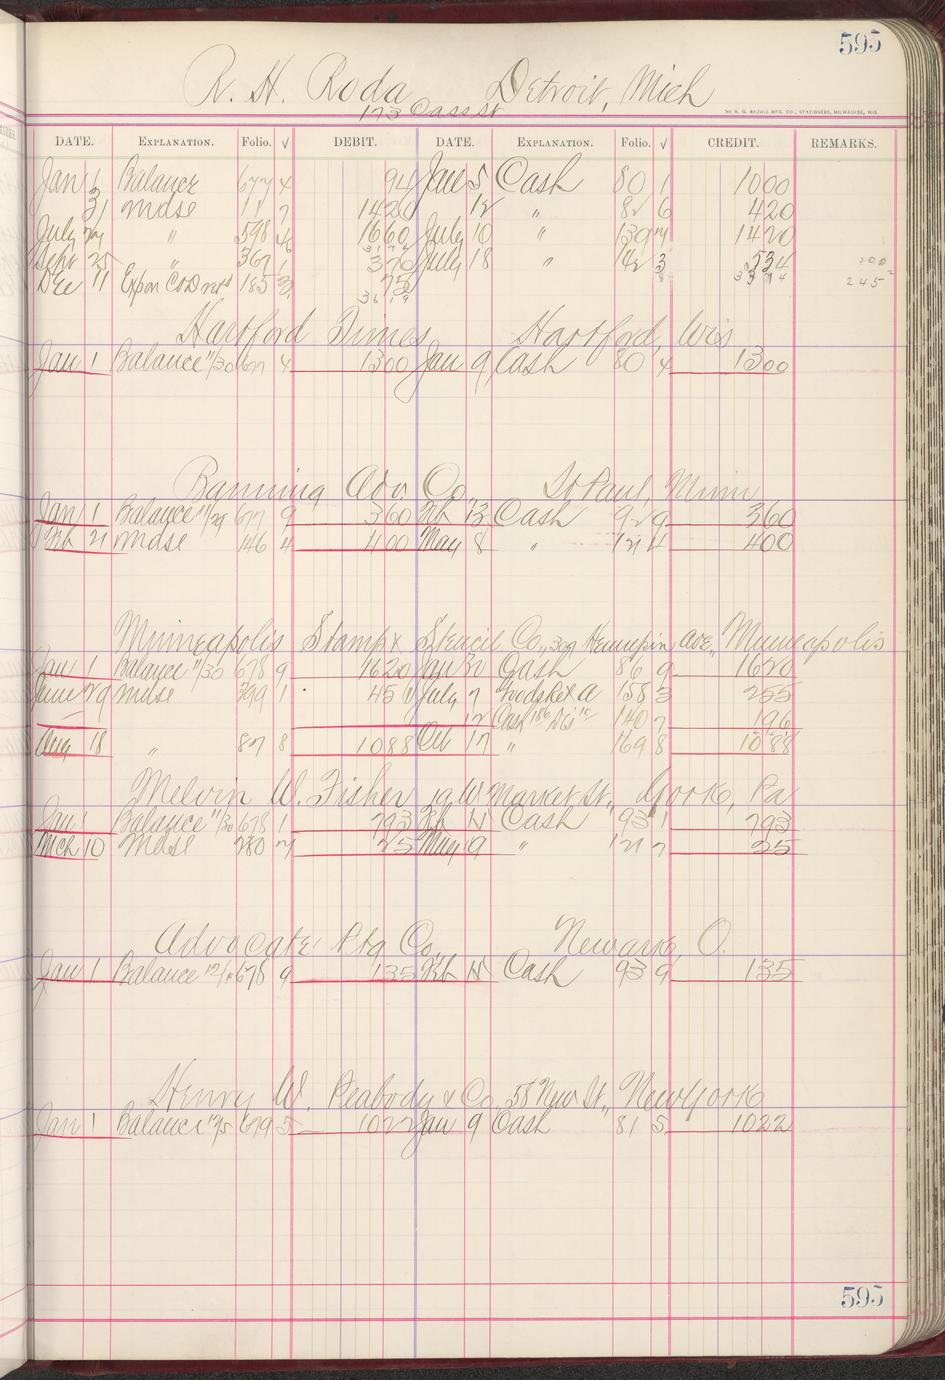 595
R. H. Roda Detroit, Mich
173 Cass St
DATE. EXPLANATION. Folio. √ DEBIT. DATE. EXPLANATION. Folio. √ CREDIT. REMARKS.
Jan 1 Balance 677 4 94 Jan 5 Cash 80 1 1000
31 Mdse 11 7 1420 12 " 82 6 420
July 24 " 598 4 1660 July 10 " 139 4 1420
Sept 25 " 367 1 370 July 18 " 142 3 534 200
Dec 11 185 3 75 3374 245
Hartford Times Hartford, Wis
Jan 1 Balance 11/30 677 4 1300 Jan 9 Cash 80 4 1300
Banning Adv. Co St Paul, Minn
Jan 1 Balance 11/29 677 9 360 Feb 13 Cash 92 9 360
Feb 21 Mdse 146 4 400 May 8 " 121 4 400
Minneapolis Stamp & Stencil Co., 309 Hennepin ave., Minneapolis
Jan 1 Balance 11/30 678 9 1620 Jan 20 Cash 86 9 1620
June 29 Mdse 399 1 451 July 7 158 3 255
12 Cash 140 7 196
Aug 18 " 87 8 1088 Oct 17 " 169 8 1088
Melvin W. Fisher 19 W Market St., York, Pa
Jan 1 Balance 11/30 678 1 793 Feb 15 Cash 93 1 793
Mch 10 Mdse 280 7 25 May 9 " 121 7 25
Advocate Ptg Co. Newark, O.
Jan 1 Balance 678 9 135 Feb 15 Cash 93 9 135
Henry W. Peabody & Co. 58 New St., New York
Jan 1 Balance 679 5 1022 Jan 9 Cash 81 5 1022
595